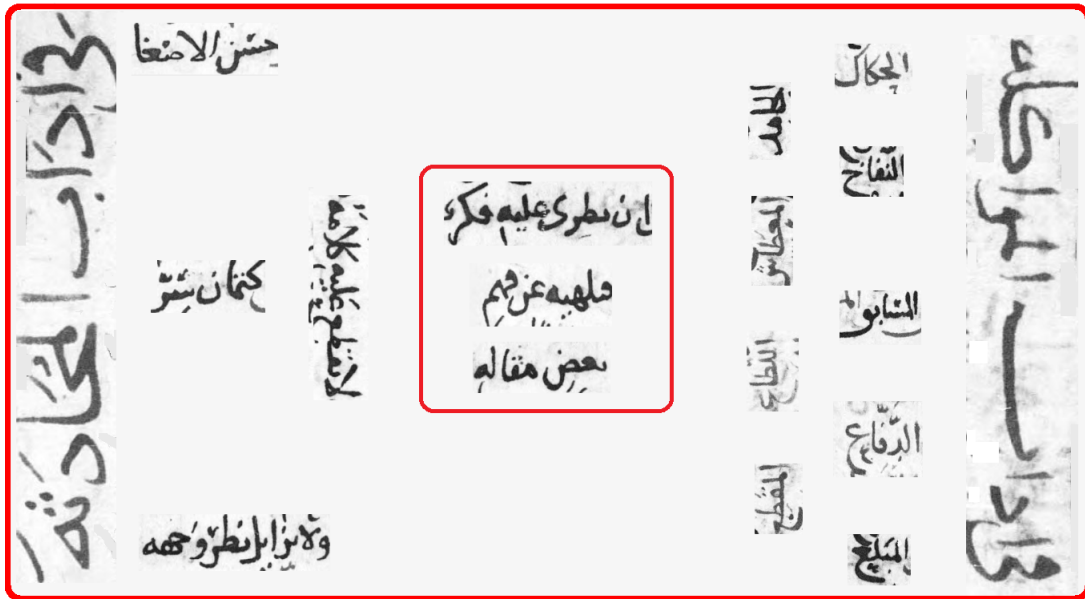 في اداب المواكله
الحكاك
النفاخ
المشابق
الدفاع
المبلع
الجامد
المعطاش
القطاع
المقطع
ان نطرى عليه فكره
فلهيه عن فهم
بعض مقاله
لا يقطع عليه كلامه
حسن الاصغا
كتمان سر
ولا يزايل نظر وجهه
في اداب المحادثه